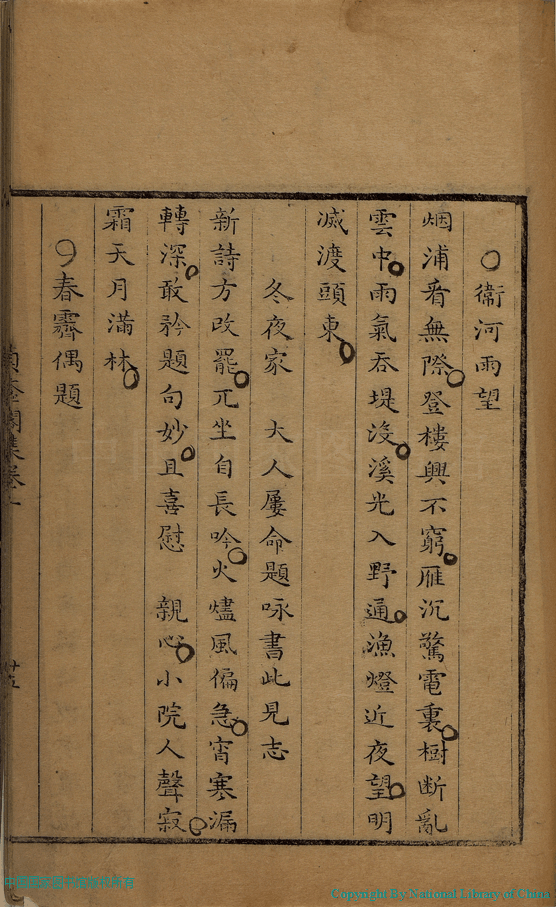 衞河雨望
烟浦看無際登樓興不窮雁沉驚電裏樹断亂
雲中雨氣吞堤沒溪光入野通漁燈近夜望明
滅渡頭東
冬夜家 大人屢命題咏書此見志
新詩方改罷兀坐自長吟火燼風偏急宵寒漏
轉深敢矜題句妙且喜慰 親心小院人聲寂
霜天月滿林
春霽偶題
閣集卷一
Copyright By National Library of China